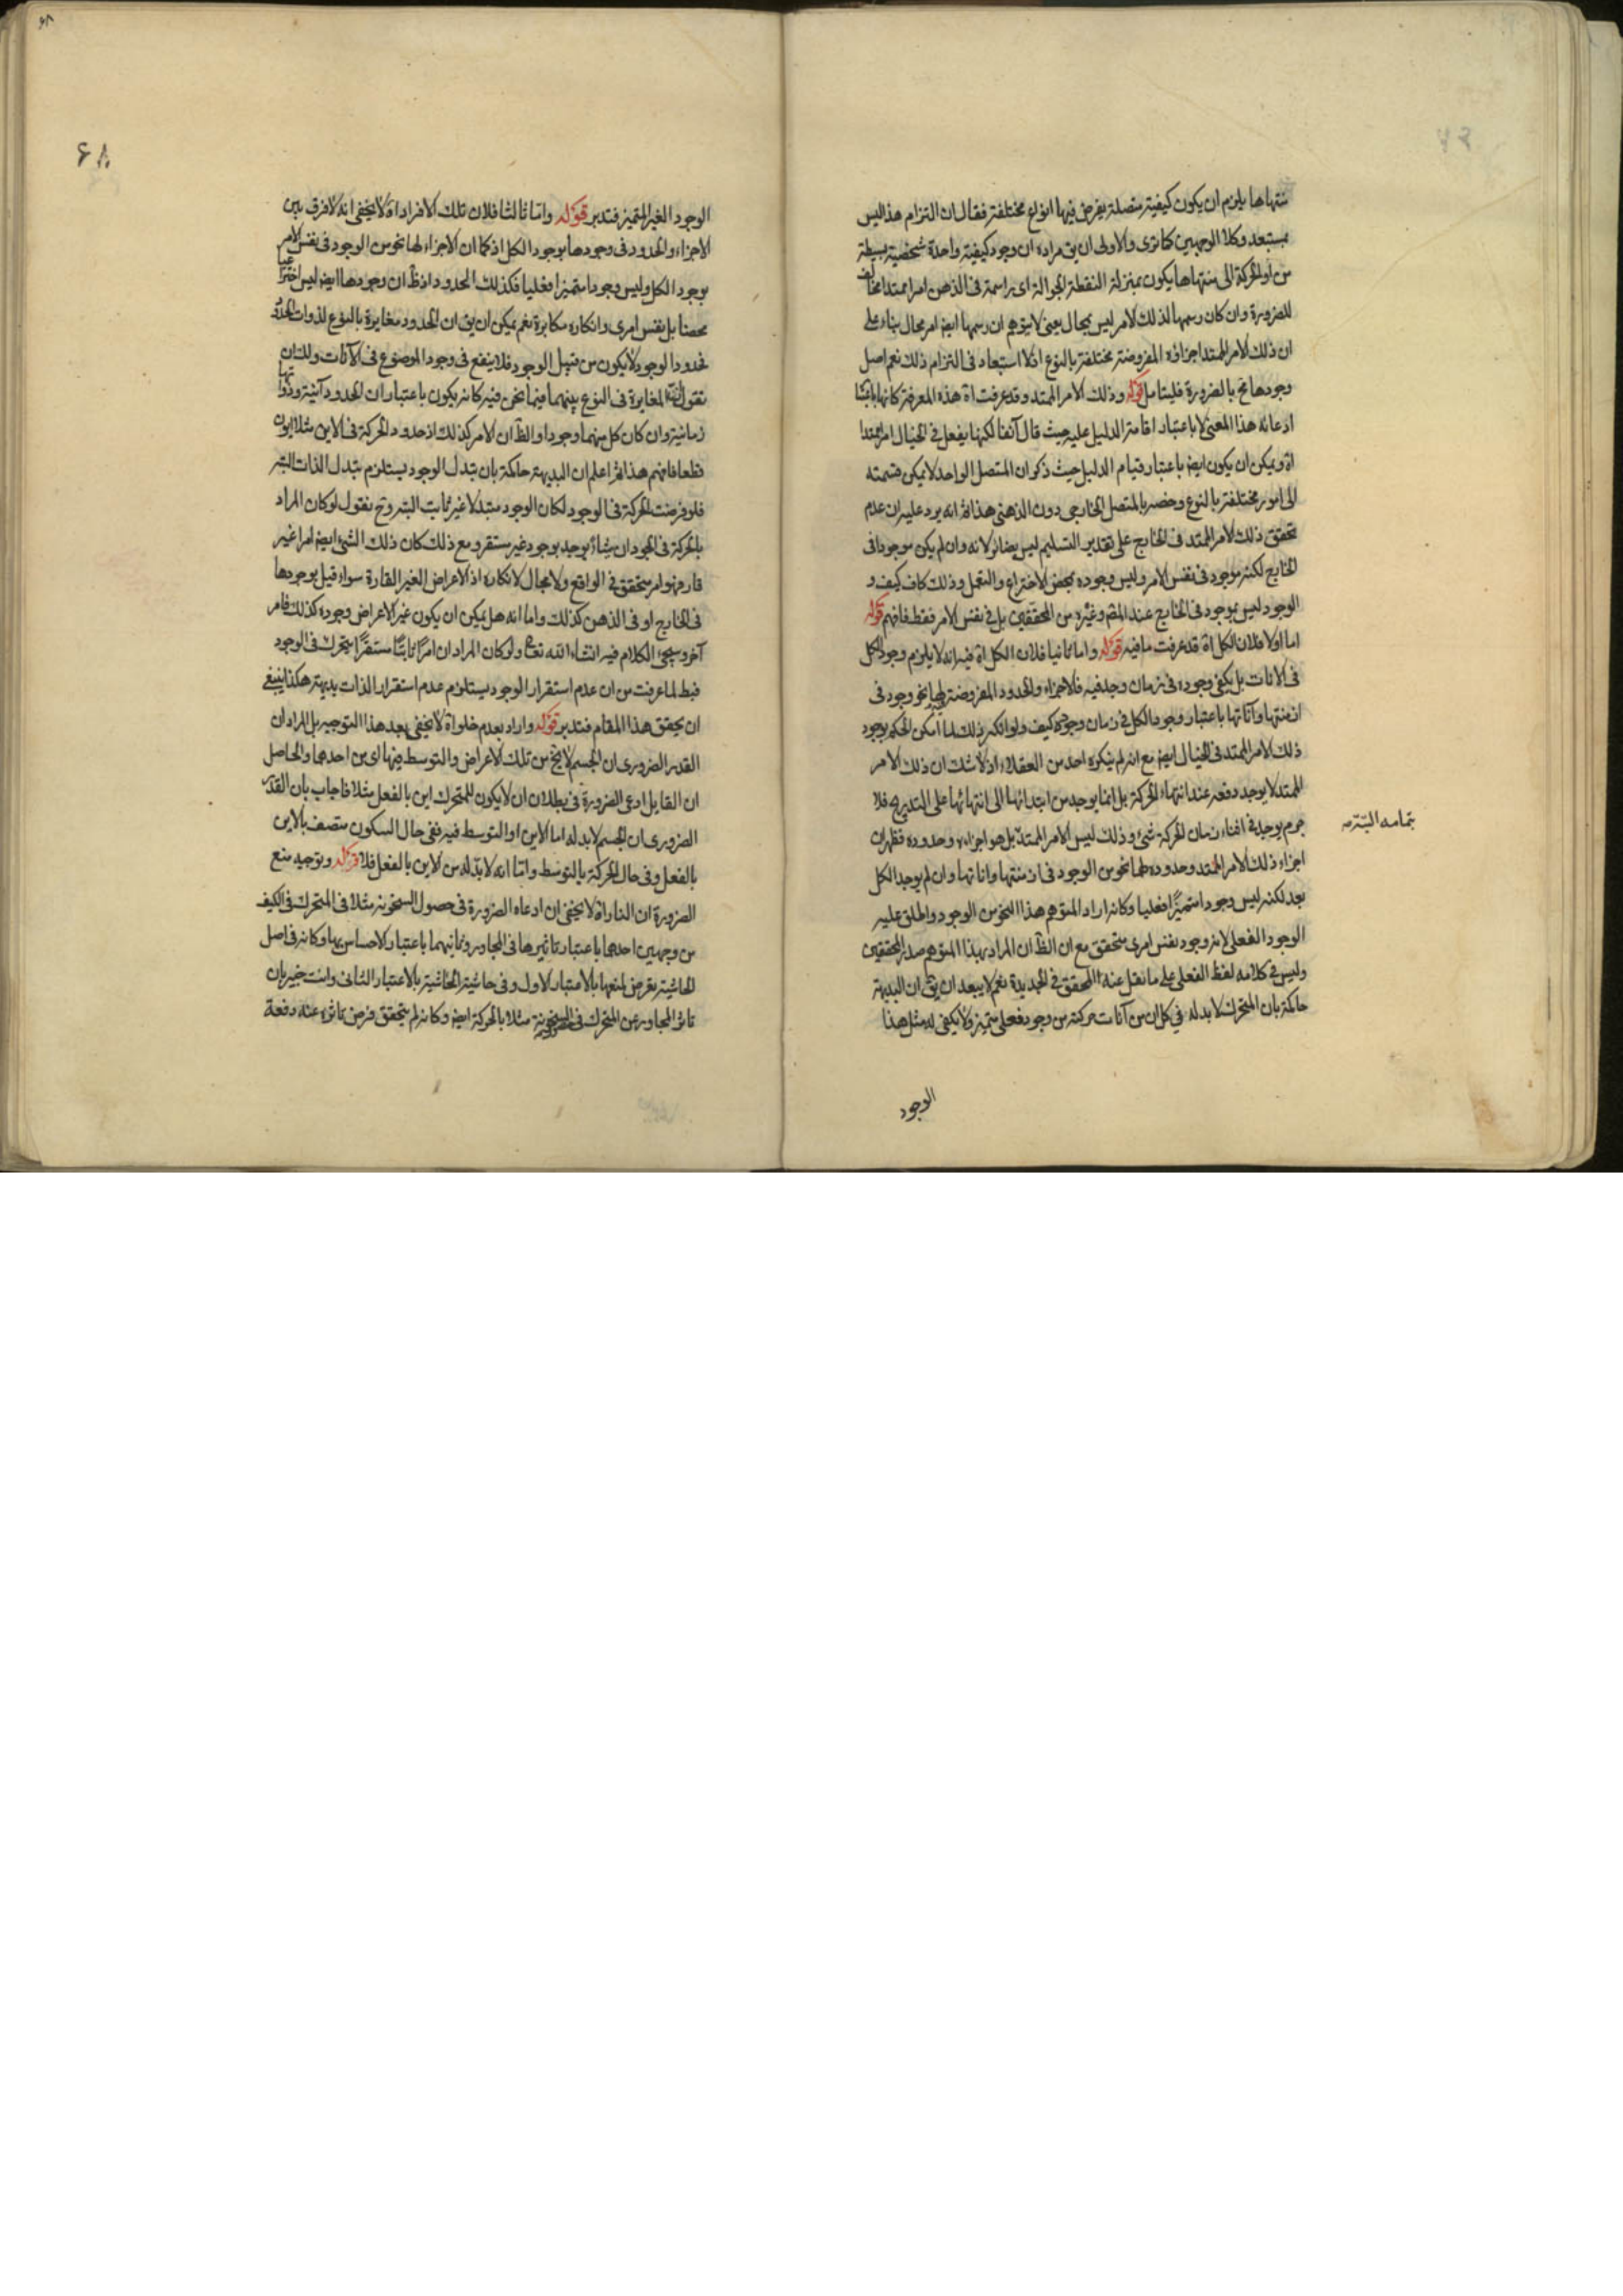 منتهاها يلزم ان يكون كيفية متصلة يفرض فيها انواع مختلفة فقال ان التزام هذا ليس
بمستبعد وكلا الوجهين كما ترى والاولى ان يق مراده ان وجود كيفية واحدة شخصية بسيطة
من اول الحركة الى منتهاها يكون بمنزلة النقطة الجوالة اى راسمة فى الذهن امرا ممتدا مخالف
للضرورة وان كان رسمها لذلك الامر ليس بمحال يعنى لا يتوهم ان رسمها ايض امر محال بناء على
ان ذلك الامر الممتد اجزاؤه المفروضة مختلفة بالنوع اذ لا استبعاد فى التزام ذلك نعم اصل
وجودها نح بالضرورة فليتامل قوله وذلك الامر الممتد وقد عرفت اه هذه المعرفة كانها باعتبار
ادعائه هذا المعنى لا باعتبار اقامة الدليل عليه حيث قال آنفا لكنها يفعل فى الخيال امرا ممتدا
اه ويمكن ان يكون ايض باعتبار قيام الدليل حيث ذكر ان المتصل الواحد لا يمكن قسمته
الى امور مختلفة بالنوع وخصه بالمتصل الخارجى دون الذهنى هذا ثم انه يرد عليه ان عدم
تحقق ذلك الامر الممتد فى الخارج على تقدير التسليم ليس بضائر لانه وان لم يكن موجودا فى
الخارج لكنه موجود فى نفس الامر وليس وجوده بمحض الاختراع والتعمل وذلك كاف كيف و
الوجود ليس بموجود فى الخارج عند المص وغيره من المحققين بل فى نفس الامر فقط فافهم قوله
اما اولا فلان الكل اه قد عرفت ما فيه قوله واما ثانيا فلان الكل اه فيه انه لا يلزم وجود الكل
فى الانات بل يكفى وجوده فى زمان وجد فيه فالاجزاء والحدود المفروضة لها نحو وجود فى
ازمنتها وآناتها باعتبار وجود الكل فى زمان وجوده كيف ولو انكر ذلك لما امكن الحكم بوجود
ذلك الامر الممتد فى الخيال ايض مع انه لم ينكره احد من العقلاء اذ لا شك ان ذلك الامر
الممتد لا يوجد دفعه عند انتهاء الحركة بل انما يوجد من ابتدائها الى انتهائها على التدريج فلا
جرم يوجد فى اثناء زمان الحركة شئ وذلك ليس الامر الممتد بل هو اجزاءه وحدوده فظهر ان
بتمامه البتة
اجزاء ذلك الامر الممتد وحدوده لها نحو من الوجود فى ازمنتها واناتها وان لم يوجد الكل
بعد لكنه ليس وجودا متميزا فعليا وكانه اراد المتوهم هذا النحو من الوجود واطلق عليه
الوجود الفعلى لانه وجود نفس امرى متحقق مع ان الظ ان المراد بهذا المتوهم صدر المحققين
وليس فى كلامه لفظ الفعلى على ما نقل عنه المحقق فى الجديدة نعم لا يبعد ان يق ان البديهة
حاكمة بان المتحرك لا بد له فى كل ان من آنات حركته من وجود فعلى متميز ولا يكفى له مثل هذا
الوجود
۶۸
الوجود الغير المتميز فتدبر قوله واما ثالثا فلان تلك الافراد اه لا يخفى انه لا فرق بين
الاجزاء والحدود فى وجودها بوجود الكل اذ كما ان الاجزاء لها نحو من الوجود فى نفس الامر
بوجود الكل وليس وجودا متميزا فعليا فكذلك الحدود اذ ظ ان وجودها ايض ليس اختراعيا
محضا بل نفس امرى وانكاره مكابرة نعم يمكن ان يق ان الحدود مغايرة بالنوع لذوات الحدود
فحدود الوجود لا يكون من قبيل الوجود فلا ينفع فى وجود الموضوع فى الآنات ولك ان
تقول ان المغايرة فى النوع بينهما فيما نحن فيه كانه يكون باعتبار ان الحدود آنية وذواتها
زمانية وان كان كل منهما وجودا والظ ان الامر كذلك اذ حدود الحركة فى الاين مثلا ايون
قطعا فافهم هذا ثم اعلم ان البديهة حاكمة بان تبدل الوجود يستلزم تبدل الذات البتة
فلو فرضت الحركة فى الوجود لكان الوجود متبدلا غير ثابت البتة وح نقول لو كان المراد
بالحركة فى الوجود ان شيئا يوجد بوجود غير مستقر ومع ذلك كان ذلك الشئ ايض امرا غير
قار فهو امر متحقق فى الواقع ولا مجال لانكاره اذ الاعراض الغير القارة سواء قيل بوجودها
فى الخارج او فى الذهن كذلك واما انه هل يمكن ان يكون غير الاعراض وجوده كذلك فامر
آخر وسيجئ الكلام فيه انشاء الله تعالى ولو كان المراد ان امرا ثابتا مستقرا يتحرك فى الوجود
فبط لما عرفت من ان عدم استقرار الوجود يستلزم عدم استقرار الذات بديهة هكذا ينبغى
ان يحقق هذا المقام فتدبر قوله واراد بعدم خلوه اه لا يخفى بعد هذا التوجيه بل المراد ان
القدر الضرورى ان الجسم لا يخ من تلك الاعراض والتوسط فيها اى من احدهما والحاصل
ان القايل ادعى الضرورة فى بطلان ان لا يكون للمتحرك اين بالفعل مثلا فاجاب بان القدر
الضرورى ان الجسم لا بد له اما الاين او التوسط فيه ففى حال السكون متصف بالاين
بالفعل وفى حال الحركة بالتوسط واما انه لا بد له من الاين بالفعل فلا قوله وتوجيه منع
الضرورة ان النار اه لا يخفى ان ادعاء الضرورة فى حصول السخونة مثلا فى المتحرك فى الكيف
من وجهين احدهما باعتبار تاثيرها فى المجاور وثانيهما باعتبار الاحساس بها وكانه فى اصل
الحاشية تعرض لمنعها بالاعتبار الاول وفى حاشية الحاشية بالاعتبار الثانى وانت خبير بان
تاثر المجاور عن المتحرك فى السخونة مثلا بالحركة ايض وكانه لم يتحقق فرض تاثره عنه دفعة